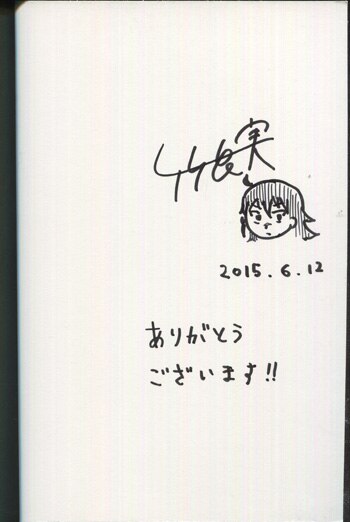 竹良実
2015.6.12
ありがとう
ございます!!